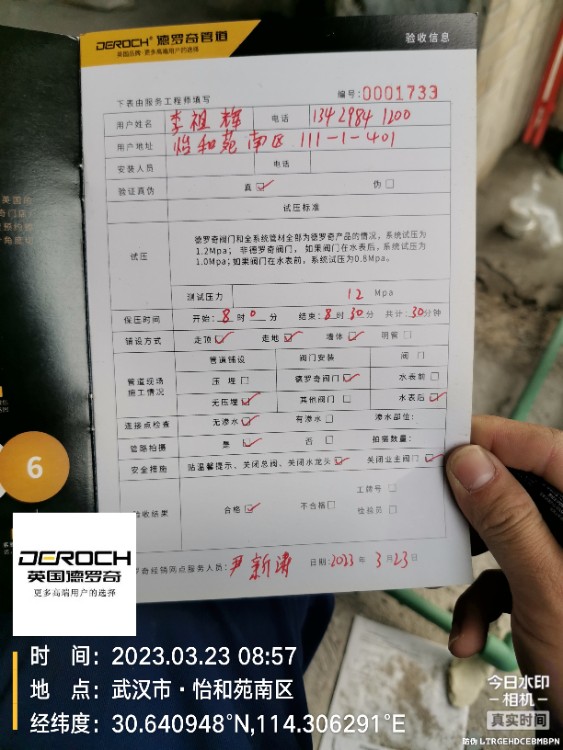 DEROCH 德罗奇管道
英国品牌·更多高端用户的选择
验收信息
下表由服务工程师填写 编号: 0001733
用户姓名 李祖辉 电话 13429841200
用户地址 怡和苑南区 111-1-401
安装人员 电话
验证真伪 真 ☑ 伪 □
试压标准
试压 德罗奇阀门和全系统管材全部为德罗奇产品的情况，系统试压为
1.2Mpa； 非德罗奇阀门，如果阀门在水表后，系统试压为
1.0Mpa；如果阀门在水表前，系统试压为0.8Mpa。
测试压力 12 Mpa
保压时间 开始: 8 时 0 分 结束: 8 时 30 分 共计: 30 分钟
铺设方式 走顶 ☑ 走地 ☑ 墙体 ☑ 明管 □
管道现场施工情况 管道铺设 阀门安装 阀门
压埋 □ 德罗奇阀门 ☑ 水表前 □
无压埋 ☑ 其他阀门 □ 水表后 ☑
连接点检查 无渗水 ☑ 有渗水 □ 渗水部位:
管路拍摄 是 ☑ 否 □ 拍摄数量:
安全措施 贴温馨提示、关闭总阀、关闭水龙头 ☑ 关闭业主阀门 ☑
验收结果 合格 ☑ 不合格 □ 工牌号 □
检验员 □
罗奇经销网点服务人员: 尹新涛 日期: 2023 年 3 月 23 日
6
DEROCH
英国德罗奇
更多高端用户的选择
时 间: 2023.03.23 08:57
地 点: 武汉市·怡和苑南区
经纬度: 30.640948°N,114.306291°E
今日水印
相机
真实时间
防伪 LTRGEHDCEBMBPN